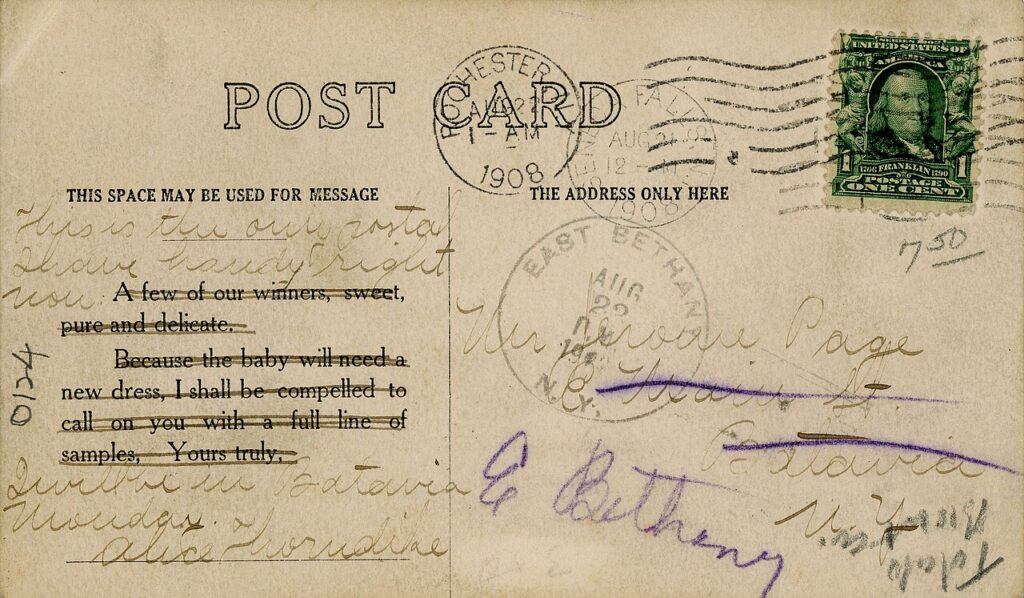 POST CARD
ROCHESTER
AUG 22
1 - AM
1908
FALLS
AUG 21
12 - M
1908
SERIES 1902
UNITED STATES OF
AMERICA
1 1706 FRANKLIN 1790 1
POSTAGE
ONE CENT
7 50
THIS SPACE MAY BE USED FOR MESSAGE
This is the only postal
I have handy right
now.
A few of our winners, sweet,
pure and delicate.
Because the baby will need a
new dress, I shall be compelled to
call on you with a full line of
samples, Yours truly,
I will be in Batavia
Monday.
Alice Thorndike
0124
THE ADDRESS ONLY HERE
EAST BETHANY
AUG
22
N.Y.
Mr Jerome Page
E. Main St.
Batavia
N.Y.
E Bethany